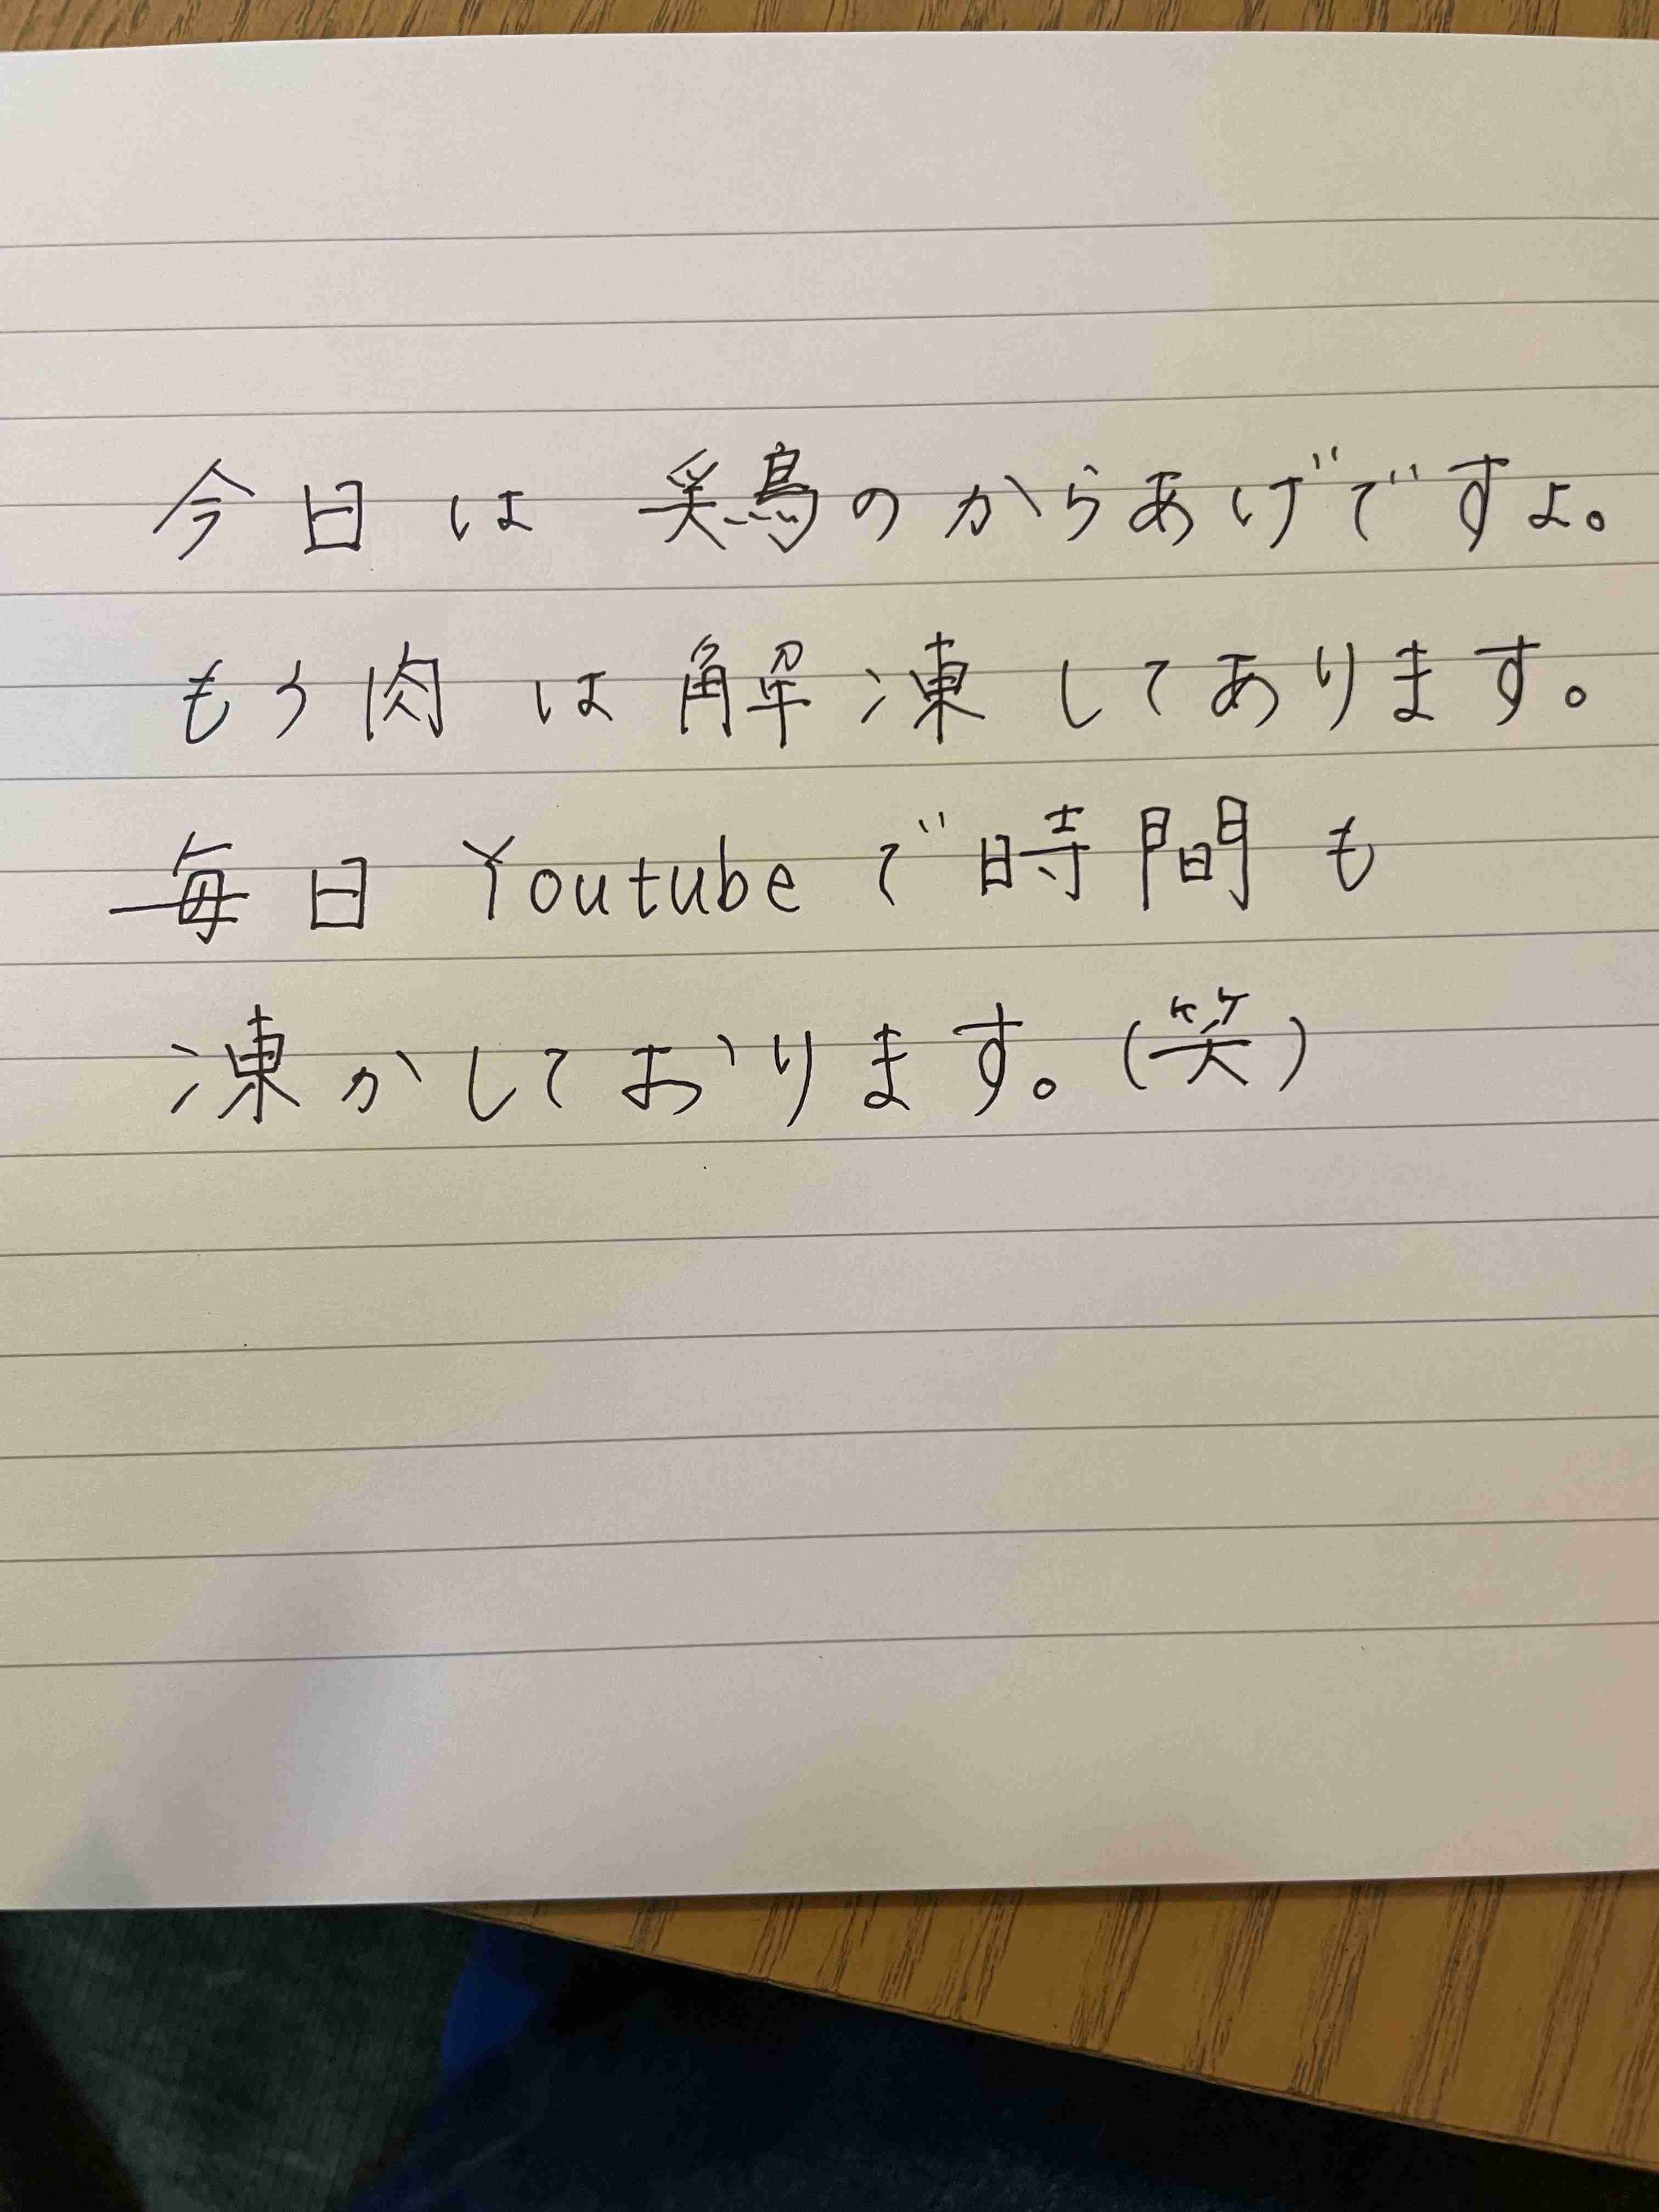 今日は鶏のからあげですよ。
もう肉は解凍してあります。
毎日Youtubeで時間も
凍かしております。(笑)